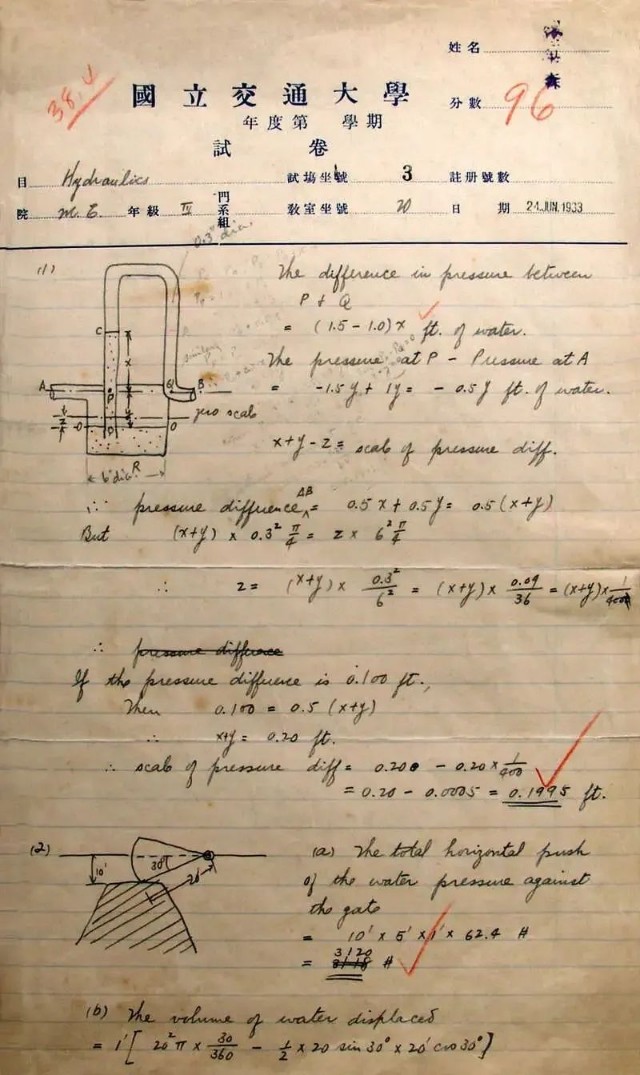 姓名
38.4
國立交通大學
分數 96
年度第 學期
試 卷
目 Hydraulics 試場坐號 3 註册號數
院 M.E. 年級 IV 門系組 教室坐號 20 日期 24 JUN. 1933
0.3" dia.
(1)
The difference in pressure between
P & Q
= (1.5 - 1.0)x ft. of water.
The pressure at P - Pressure at A
= -1.5y + 1y = -0.5y ft. of water.
C
x
A P Q B
y
zero scale
z
O D O
R
6" dia.
x+y-z = scale of pressure diff.
∴ pressure diffrence AB = 0.5x + 0.5y = 0.5(x+y)
But (x+y) × 0.3² π/4 = z × 6² π/4
∴ z = (x+y) × 0.3²/6² = (x+y) × 0.09/36 = (x+y) × 1/400
∴ pressure difference
If the pressure difference is 0.100 ft.,
Then 0.100 = 0.5 (x+y)
∴ x+y = 0.20 ft.
∴ scale of pressure diff = 0.200 - 0.20 × 1/400
= 0.20 - 0.0005 = 0.1995 ft.
(2)
10' 30° 20'
(a) The total horizontal push
of the water pressure against
the gate
= 10' × 5' × 1' × 62.4 #
= 3120 #
(b) The volume of water displaced
= 1' [ 20² π × 30/360 - 1/2 × 20 sin 30° × 20' cos 30° ]